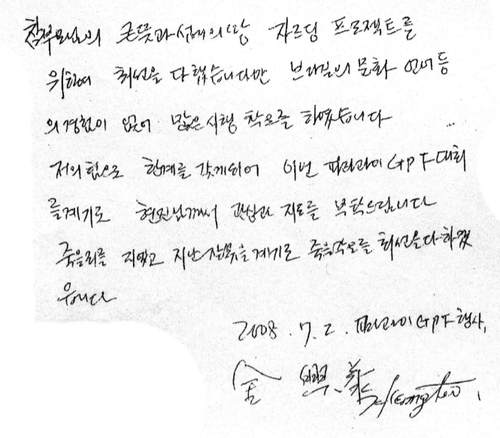 참부모님의 큰뜻과 섭리의 땅 자르딩 프로젝트를
위하여 최선을 다 했습니다만 브라질의 문화 언어등
의 경험이 없어 많은 시행 착오를 하였습니다
저의 힘으로 한계를 갖게되어 이번 파라과이 GPF 대회
를계기로 현진님께서 관심과 지도를 부탁드립니다
죽을죄를 지었고 지난 잘못을 계기로 죽을각오로 최선을다하겠
읍니다
2008. 7. 2. 파라과이 GPF 행사,
金 興